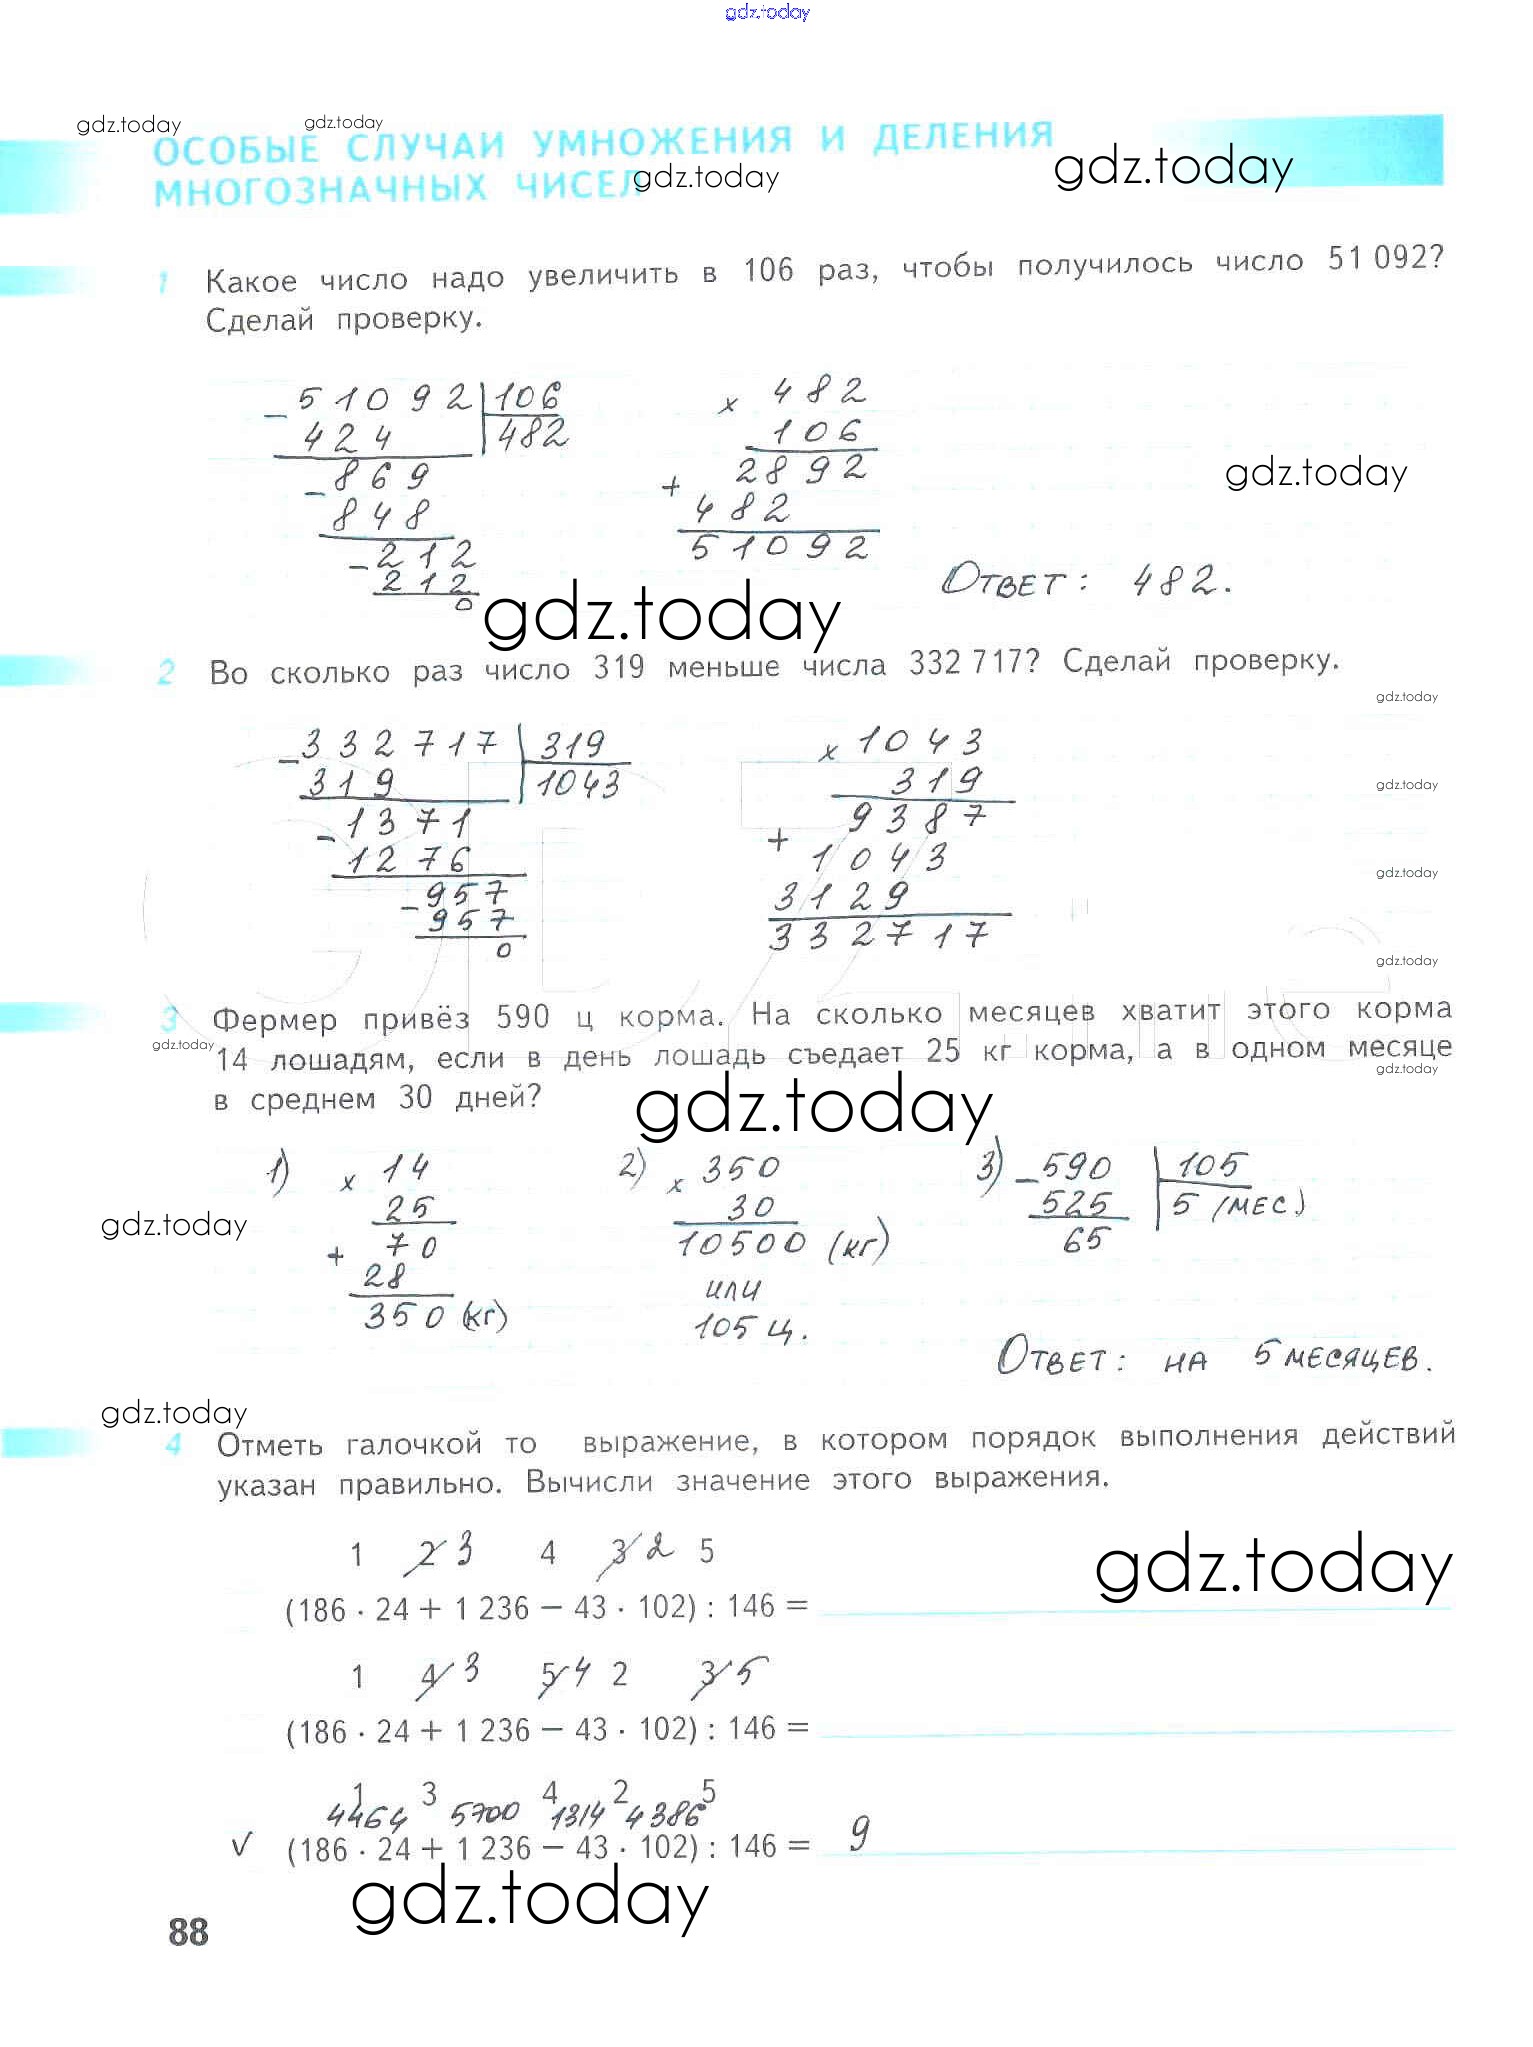 gdz.today
gdz.today gdz.today
ОСОБЫЕ СЛУЧАИ УМНОЖЕНИЯ И ДЕЛЕНИЯ
МНОГОЗНАЧНЫХ ЧИСЕЛ
gdz.today gdz.today
1 Какое число надо увеличить в 106 раз, чтобы получилось число 51 092?
Сделай проверку.
- 51092 | 106
424 | 482
- 869
848
- 212
212
0
× 482
106
+ 2892
482
51092
gdz.today
Ответ: 482.
gdz.today
2 Во сколько раз число 319 меньше числа 332 717? Сделай проверку.
gdz.today
- 332717 | 319
319 | 1043
- 1371
1276
- 957
957
0
× 1043
319
+ 9387
1043
3129
332717
gdz.today
gdz.today
gdz.today
3 Фермер привёз 590 ц корма. На сколько месяцев хватит этого корма
gdz.today
14 лошадям, если в день лошадь съедает 25 кг корма, а в одном месяце
gdz.today
в среднем 30 дней?
gdz.today
1) × 14
25
+ 70
28
350 (кг)
2) × 350
30
10500 (кг)
или
105 ц.
3) - 590 | 105
525 | 5 (мес.)
65
gdz.today
Ответ: на 5 месяцев.
gdz.today
4 Отметь галочкой то выражение, в котором порядок выполнения действий
указан правильно. Вычисли значение этого выражения.
1 2 3 4 3 2 5
gdz.today
(186 · 24 + 1 236 − 43 · 102) : 146 =
1 4 3 5 4 2 3 5
(186 · 24 + 1 236 − 43 · 102) : 146 =
1 3 4 2 5
4464 5700 1314 4386
√ (186 · 24 + 1 236 − 43 · 102) : 146 = 9
gdz.today
88